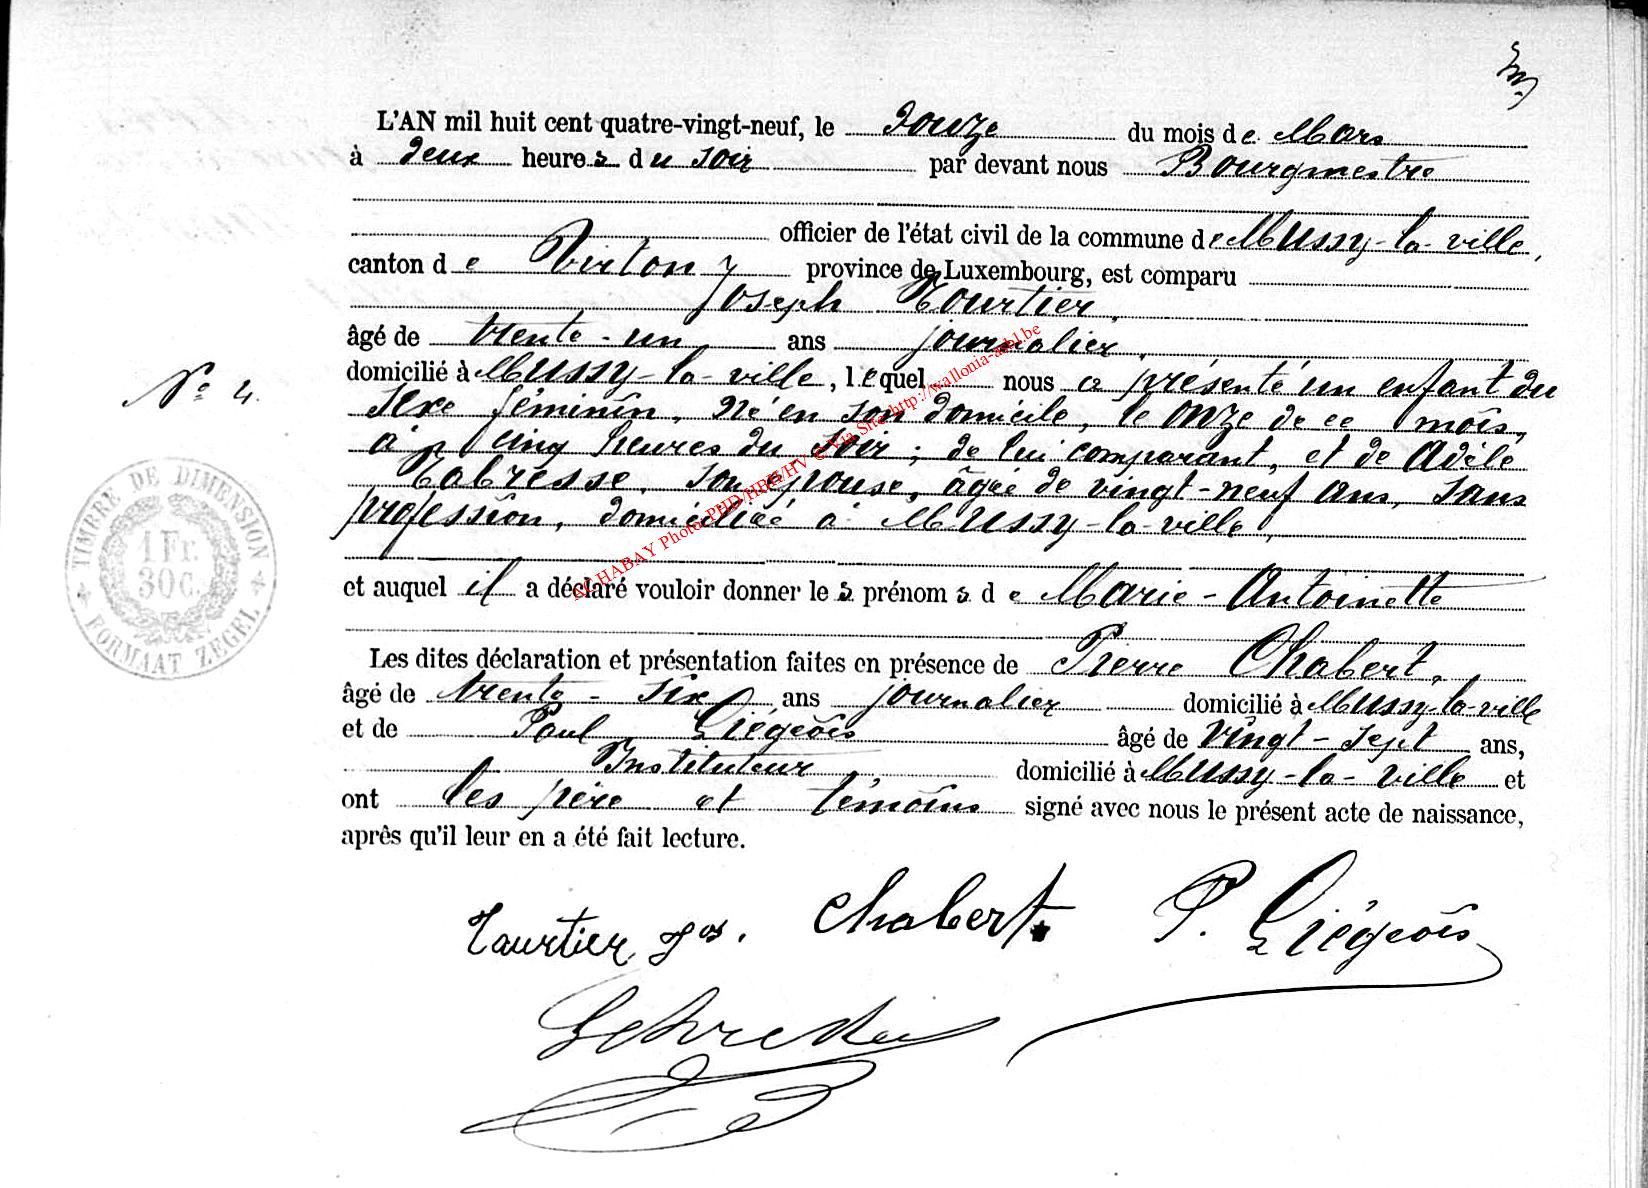 L'AN mil huit cent quatre-vingt-neuf, le douze du mois de Mars
à deux heures du soir par devant nous Bourgmestre
officier de l'état civil de la commune de Mussy-la-ville,
canton de Virton, province de Luxembourg, est comparu
Joseph Tourtier,
âgé de trente-un ans journalier,
domicilié à Mussy-la-ville, lequel nous a présenté un enfant du
N° 4.
sexe féminin, né en son domicile, le onze de ce mois,
à cinq heures du soir ; de lui comparant, et de Adèle
Tabresse, son épouse, âgée de vingt-neuf ans, sans
profession, domiciliée à Mussy-la-ville,
et auquel il a déclaré vouloir donner les prénoms de Marie-Antoinette
Les dites déclaration et présentation faites en présence de Pierre Chabert,
âgé de trente-six ans journalier domicilié à Mussy-la-ville
et de Paul Liégeois âgé de vingt-sept ans,
Instituteur domicilié à Mussy-la-ville et
ont les père et témoins signé avec nous le présent acte de naissance,
après qu'il leur en a été fait lecture.
Tourtier Jos. Chabert. P. Liégeois
TIMBRE DE DIMENSION
1 Fr.
30C.
FORMAAT ZEGEL
AC HABAY Photo PHD/HRH/HV © Via Site http://wallonia-asbl.be